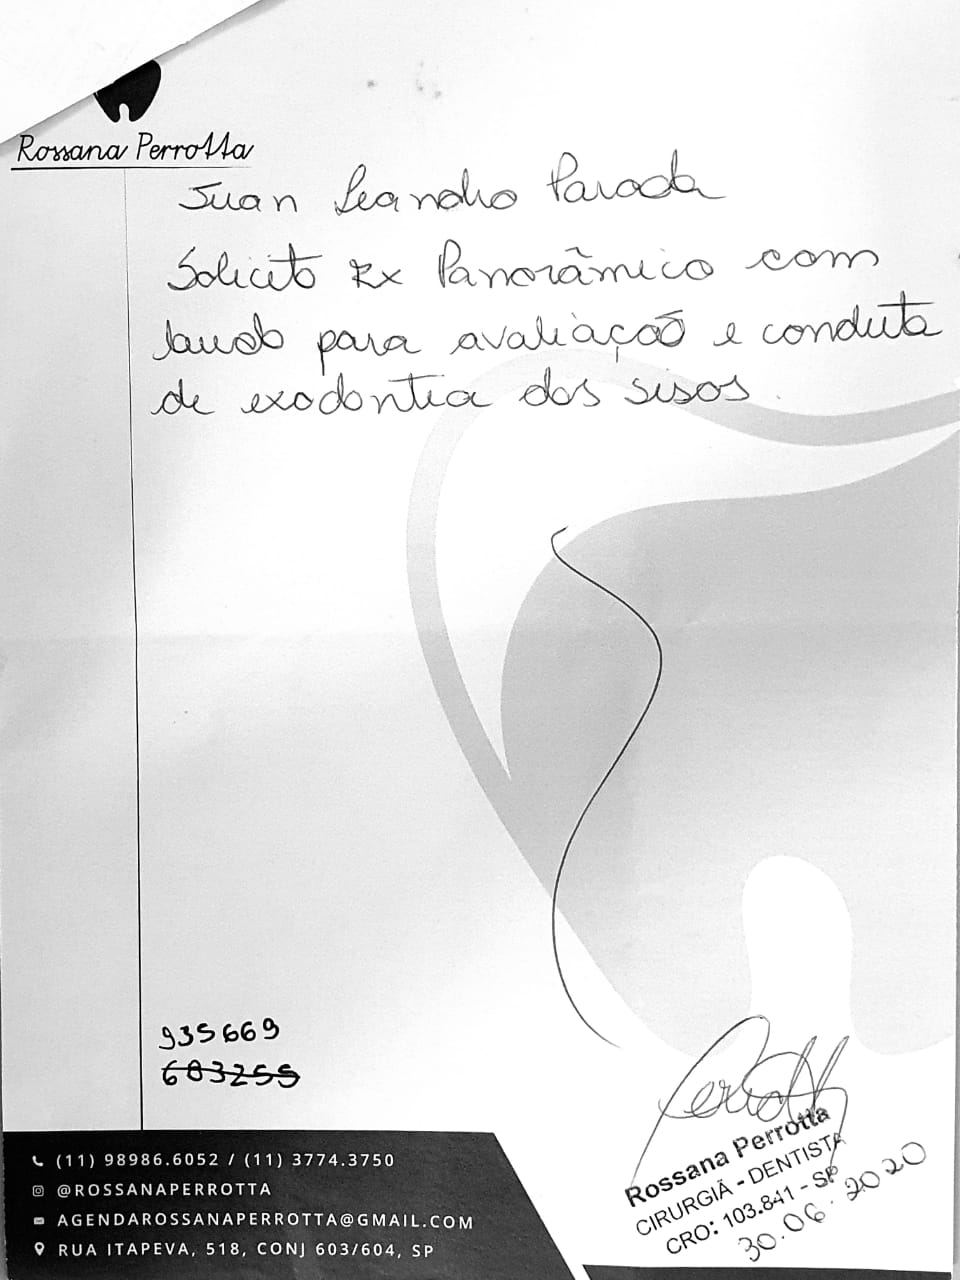 Rossana Perrotta
Juan Leandro Parada
Solicito Rx Panorâmico com
laudo para avaliação e conduta
de exodontia dos sisos.
935669
683255
(11) 98986.6052 / (11) 3774.3750
@ROSSANAPERROTTA
AGENDAROSSANAPERROTTA@GMAIL.COM
RUA ITAPEVA, 518, CONJ 603/604, SP
Perrotta
Rossana Perrotta
CIRURGIÃ - DENTISTA
CRO: 103.841 - SP
30.06.2020